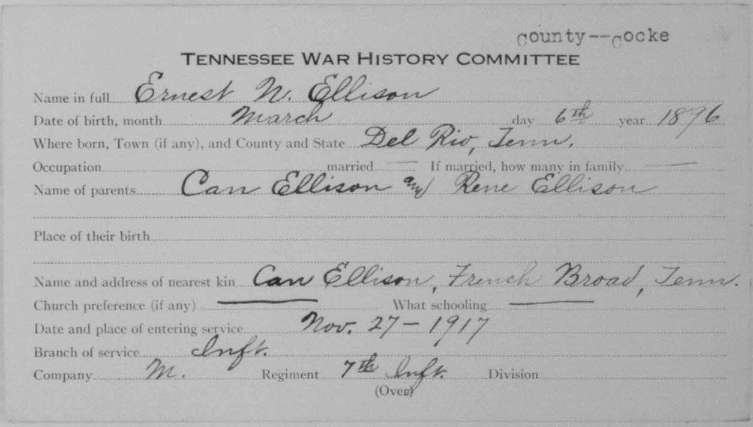 county--cocke
TENNESSEE WAR HISTORY COMMITTEE
Name in full Ernest N. Ellison
Date of birth, month March day 6th year 1896
Where born, Town (if any), and County and State Del Rio, Tenn.
Occupation married — If married, how many in family —
Name of parents Can Ellison and Rene Ellison
Place of their birth
Name and address of nearest kin Can Ellison, French Broad, Tenn.
Church preference (if any) — What schooling —
Date and place of entering service Nov. 27-1917
Branch of service Inft.
Company M. Regiment 7th Inft. Division
(Over)